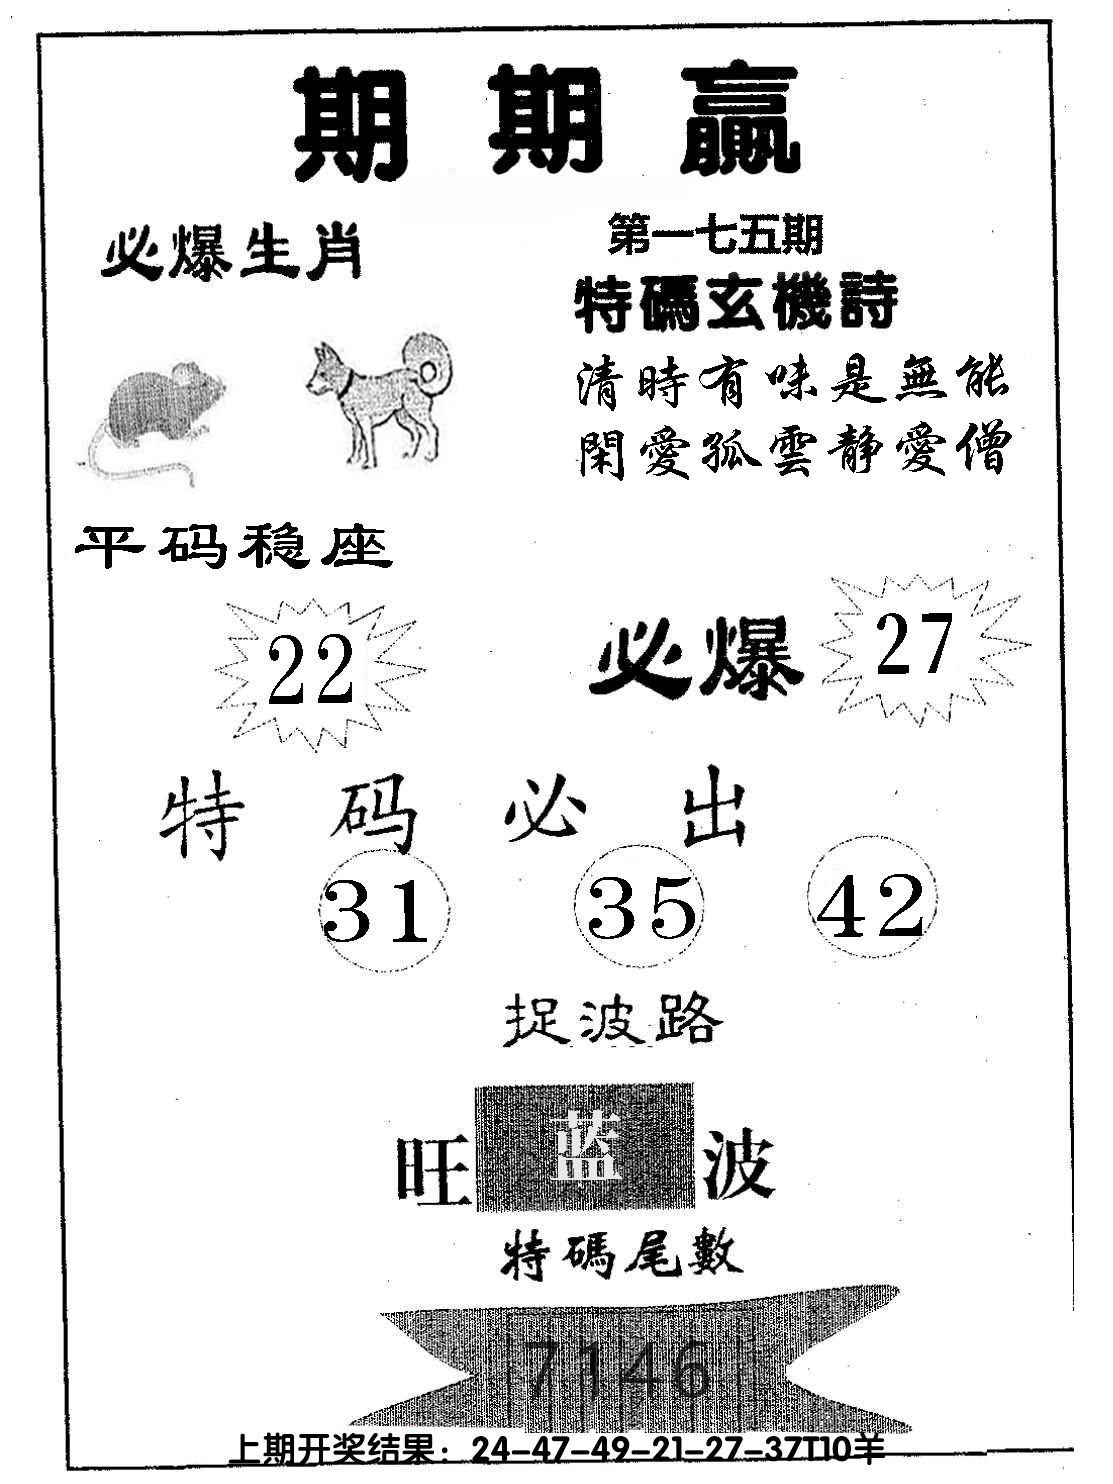 期期贏
必爆生肖
第一七五期
特碼玄機詩
清時有味是無能
閑愛孤雲静愛僧
平码稳座
22
必爆 27
特码必出
31 35 42
捉波路
旺 蓝 波
特碼尾數
7146
上期开奖结果：24-47-49-21-27-37T10羊